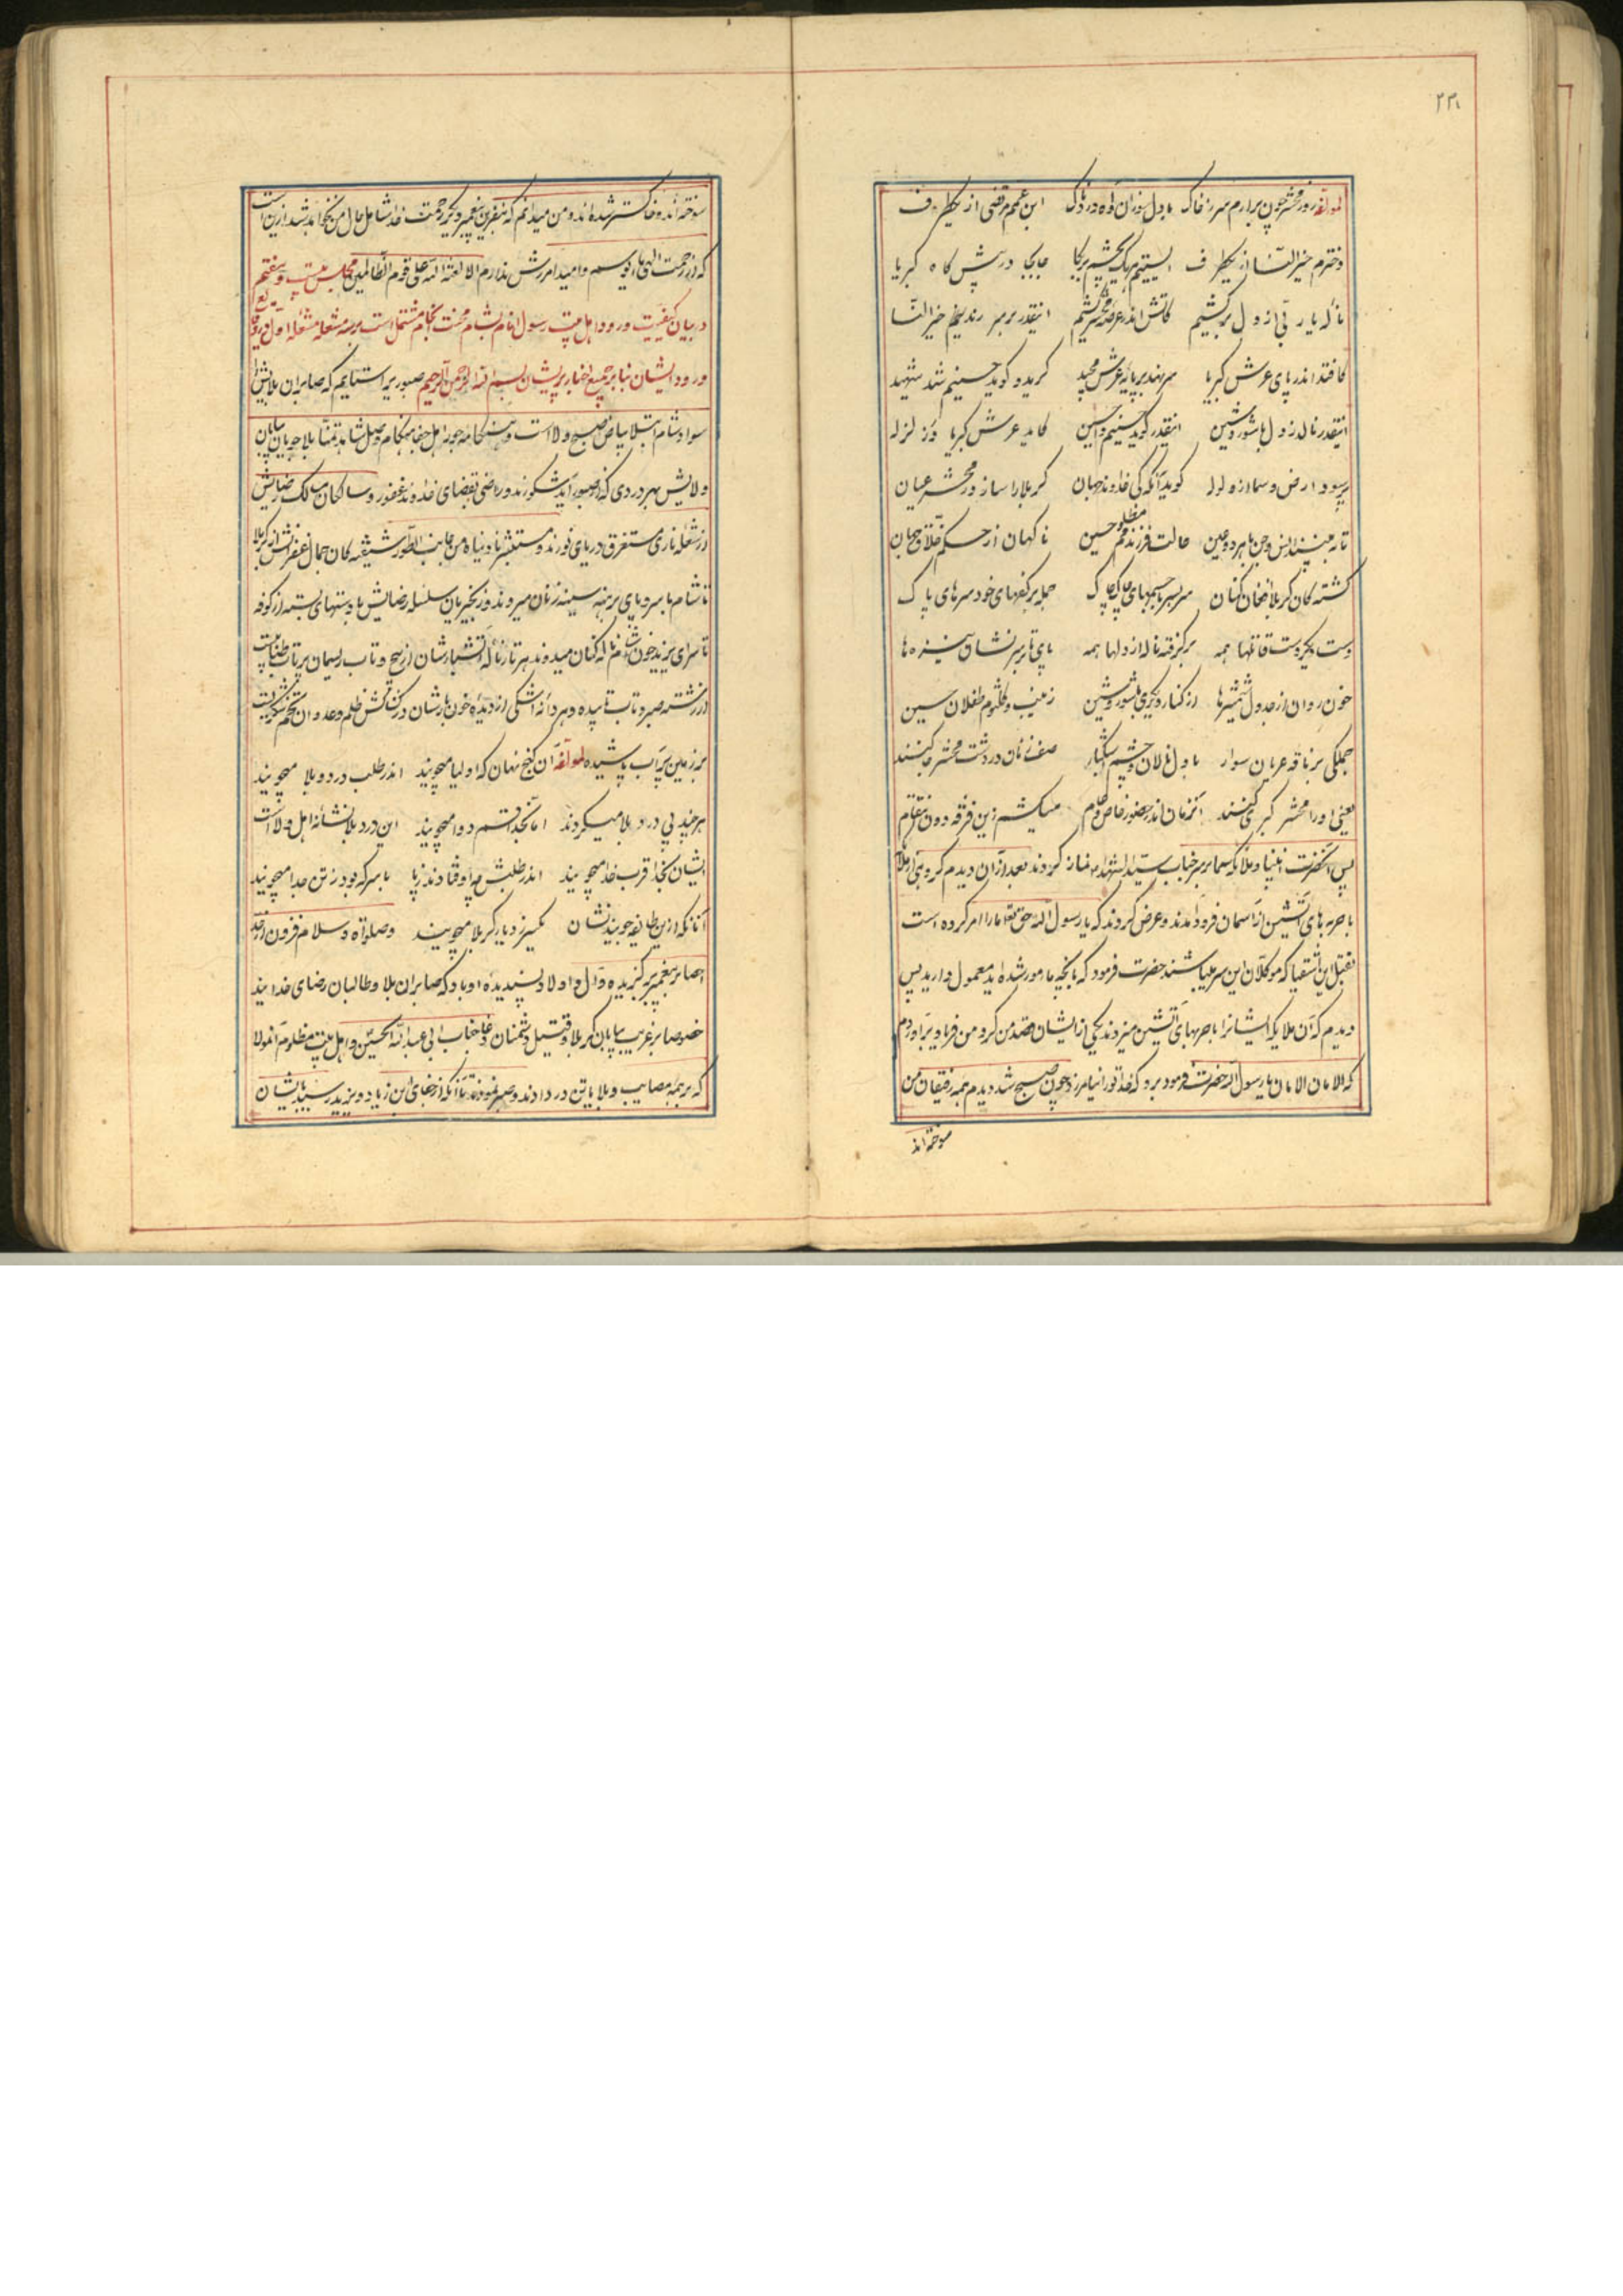 ۲۳۱
لمولفه روز محشر چون برارم سر ز خاک با دل سوزان و آه دردناک ابن عمم مرتضی از یکطرف
دخترم خیر النسا از یکطرف ایستیم یک بجا در پیش گاه کبریا
ناله یا رب ز دل بر کشیم کاتش اندر عرصه محشر کشیم انقدر بر سر زند خیر النسا
کافتد اندر پای عرش کبریا سر نهد بر پایه عرش مجید گرید و گوید حسینم شد شهید
انقدر نالد ز دل با شور و شین انقدر گوید حسینم واحسین کاید عرش کبریا در زلزله
پر شود ارض و سما از ولوله گوید آنگه کی خداوند جهان کربلا را ساز در محشر عیان
تا به بینند انس و جن با هر دو عین حالت فرزند مظلومم حسین ناگهان از حکم خلاق جهان
کشته گان کربلا افغان کنان سر بسر با جسمهای چاک چاک جمله بر کفهای خود سرهای پاک
دست یکدست قاتلها همه بر گرفته ناله از دلها همه پای تا بر سر نشان نیزه ها
خون روان از جدول شمشیرها از کنار دیگری با شور و شین زینب و کلثوم و طفلان حسین
جملگی بر ناقه عریان سوار با دل نالان و چشم اشکبار صف زنان در دشت محشر جا کنند
یعنی او را محشر کبری کنند آنزمان اندر حضور خاص و عام میکشم زین فرقه دون انتقام
پس آنحضرت با انبیا و ملائکه سما بر سر جناب سید الشهدا نماز کردند بعد از آن دیدم گروهی از ملائکه
با حربه های آتشین از آسمان فرود آمدند و عرض کردند که یا رسول الله حق تعالی ما را امر کرده است
بقتل این اشقیا که موکلان این سر میباشند حضرت فرمود که بانچه مامور شده اید معمول دارید پس
دیدم که آن ملایکه ایشانرا با حربهای آتشین میزدند یکی از ایشان قصد من کرد و من فریاد بر آوردم
که الامان الامان یا رسول الله حضرت فرمود برو که خدا تو را نیامرزد چون صبح شد دیدم همه رفیقان من
سوخته اند
سوخته اند و خاکستر شده اند و من میدانم که بنفرین پیغمبر دیگر رحمت خدا شامل حال من نخواهد شد از این است
که از رحمت الهی مایوسم و امید امرزش ندارم الا لعنة الله علی قوم الظالمین مجلس بیست و هفتم
در بیان کیفیت ورود اهل بیت رسول انام بشام محنت انجام مشتمل است بر سه شعله شعله اول در وقایع
ورود ایشان بنا بر جمیع اخبار بسم الله الرحمن الرحیم صبوریرا ستایم که صابران بلایش را
سواد شام ابتلا بیاض صبح ولا است و هنگامه جور اهل جفا هنگام وصل شاهد تمنا بلا جویان بیابان
ولایش بهر دردی که از صبور آید شکورند و راضی بقضای خداوند غفور و سالکان مسالک رضایش
از شعله ناری مستغرق دریای نورند و مستغنی از جانب الطور شیفته گان جمال از کربلا
تا شام با سر و پای برهنه سینه زنان میروند و زنجیریان سلسله رضایش با دستهای بسته از کوفه
تا سرای یزید خون آشام ناله کنان میدوند هر تار ناله آتشبارشان از پیچ و تاب ریسمان
از رشته صبر و تاب تابیده و هر دانه اشکی از دیده خون بارشان در کشاکش ظلم و عدوان
بر زمین پاشیده لمولفه آن گنج نهان که اولیا میجویند اندر طلب درد و بلا میجویند
هر چند پی درد بلا میگردند اما بخدا قسم دوا میجویند این درد بلا نشانه اهل ولا است
ایشان بخدا قرب خدا میجویند اندر طلبش چه اوفتادند ز پا با سر که بود ز تن جدا میجویند
آنانکه ازین طایفه جویند نشان یکسر ز دیار کربلا میجویند و صلواة و سلام فزون از حد
احصا بر پیغمبر برگزیده و آل و اولاد پسندیده او باد که صابران بلا و طالبان رضای خدایند
خصوصا بر غریب بیابان کربلا و قتیل دشمنان دغا جناب ابی عبدالله الحسین و اهل بیت مظلوم آنمولا
که بر همه مصایب و بلایا تن در دادند و صبر نمودند تا آنکه از جفای ابن زیاد و یزید رسید بایشان